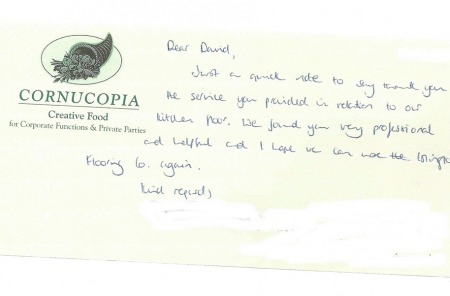 CORNUCOPIA
Creative Food
for Corporate Functions & Private Parties
Dear David,
Just a quick note to say thank you
the service you provided in relation to our
kitchen floor. We found you very professional
and helpful and I hope we can use the
Flooring Co. again.
Kind regards